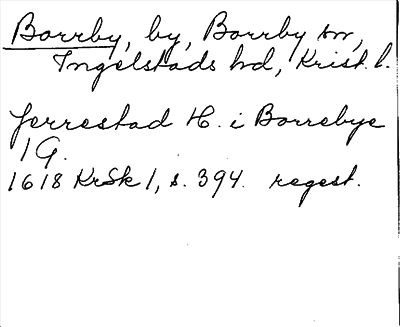 Borrby, by, Borrby sn,
Ingelstads hd, Krist. l.
Jerrestad H. i Borrebye
1 G.
1618 KrSk 1, s. 394. regest.